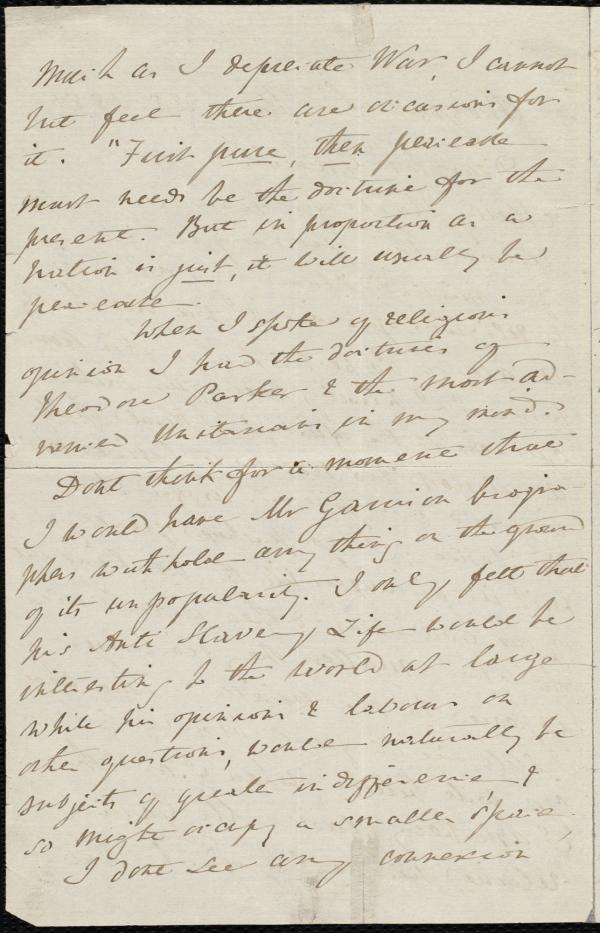 Much as I depreciate War, I cannot
but feel there are occasions for
it. "First pure, then peaceable
must needs be the doctrine for the
present. But in proportion as a
nation is just, it will usually be
peaceable.
When I spoke of religious
opinion I had the doctrines of
Theodore Parker & the most ad-
vanced Unitarians in my mind.
Dont think for a moment that
I would have Mr Garrison biogra-
phers withhold any thing on the ground
of its unpopularity. I only felt that
his Anti Slavery Life would be
interesting to the world at large
while his opinions & labours on
other questions, would naturally be
subjects of greater indifference, &
so might occupy a smaller space.
I dont see any connexion